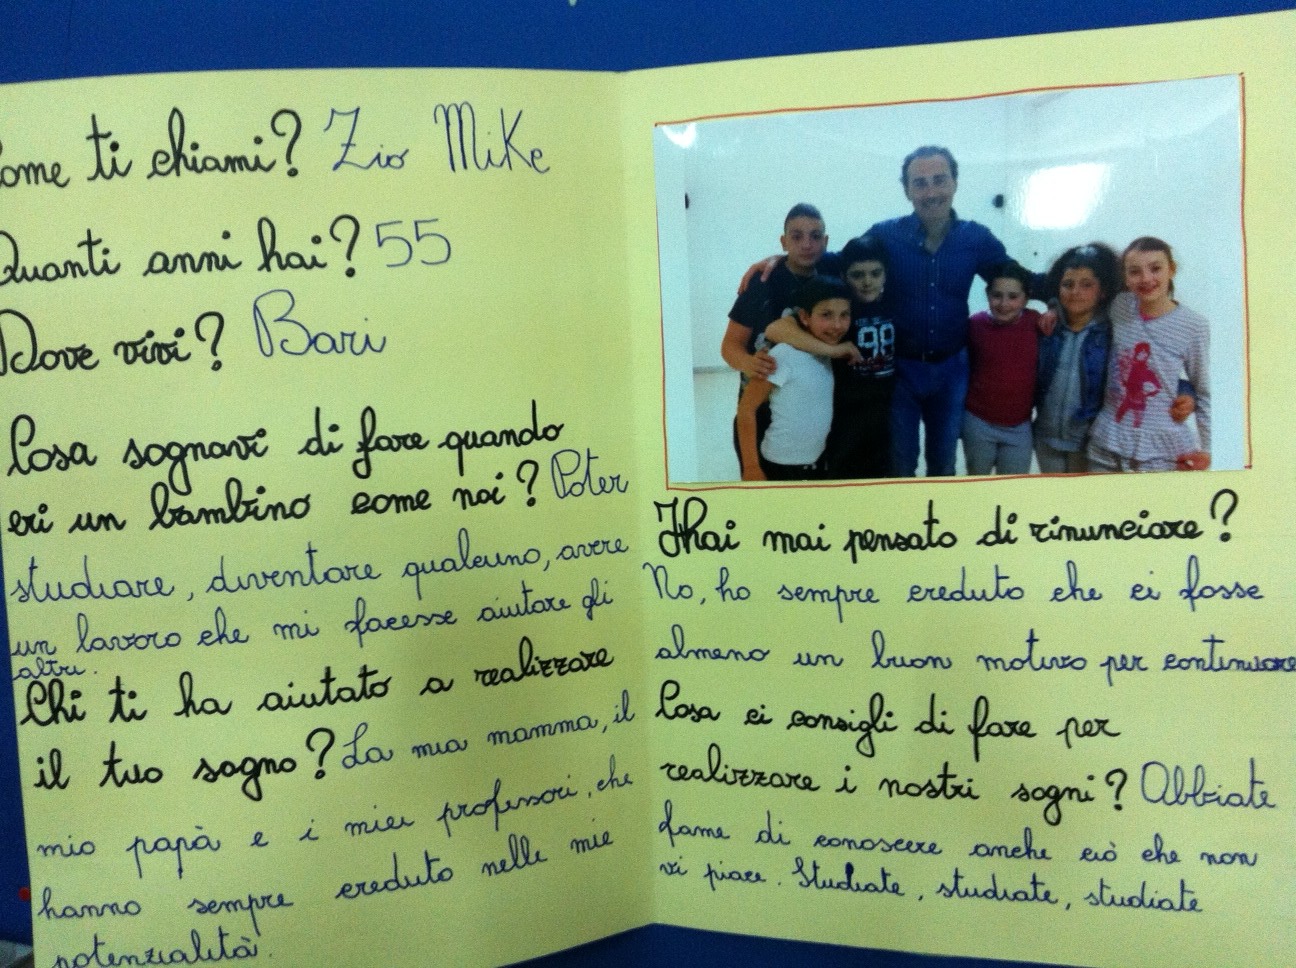 Come ti chiami? Zio Mike
Quanti anni hai? 55
Dove vivi? Bari
Cosa sognavi di fare quando
eri un bambino come noi? Poter
studiare, diventare qualcuno, avere
un lavoro che mi facesse aiutare gli
altri.
Chi ti ha aiutato a realizzare
il tuo sogno? La mia mamma, il
mio papà e i miei professori, che
hanno sempre creduto nelle mie
potenzialità.
98
Hai mai pensato di rinunciare?
No, ho sempre creduto che ci fosse
almeno un buon motivo per continuare
Cosa ci consigli di fare per
realizzare i nostri sogni? Abbiate
fame di conoscere anche ciò che non
vi piace. Studiate, studiate, studiate